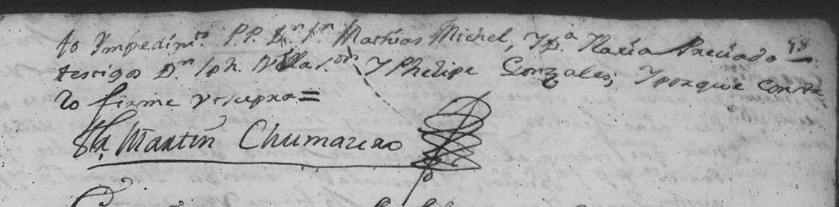 to Ympedimto PP. Dn Jn Mathias Michel, Y Da Maria Preciado 98
testigos Dn Jph. Villasor Y Phelipe Gonzales; Y porque conste
lo firme vt supra =
Fr. Martin Chumazero